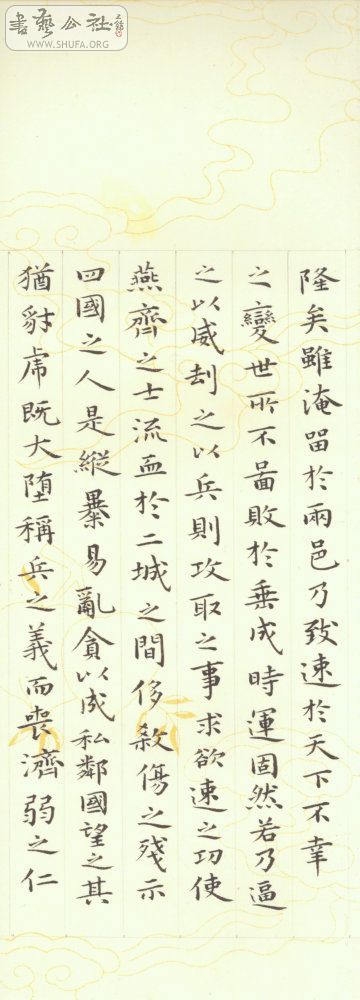 書藝公社
WWW.SHUFA.ORG
隆矣雖淹留於兩邑乃致速於天下不幸
之變世所不啚敗於垂成時運固然若乃逼
之以威刧之以兵則攻取之事求欲速之功使
燕齊之士流血於二城之間侈殺傷之殘示
四國之人是縱暴易亂貪以成私鄰國望之其
猶豺虎既大堕稱兵之義而喪濟弱之仁